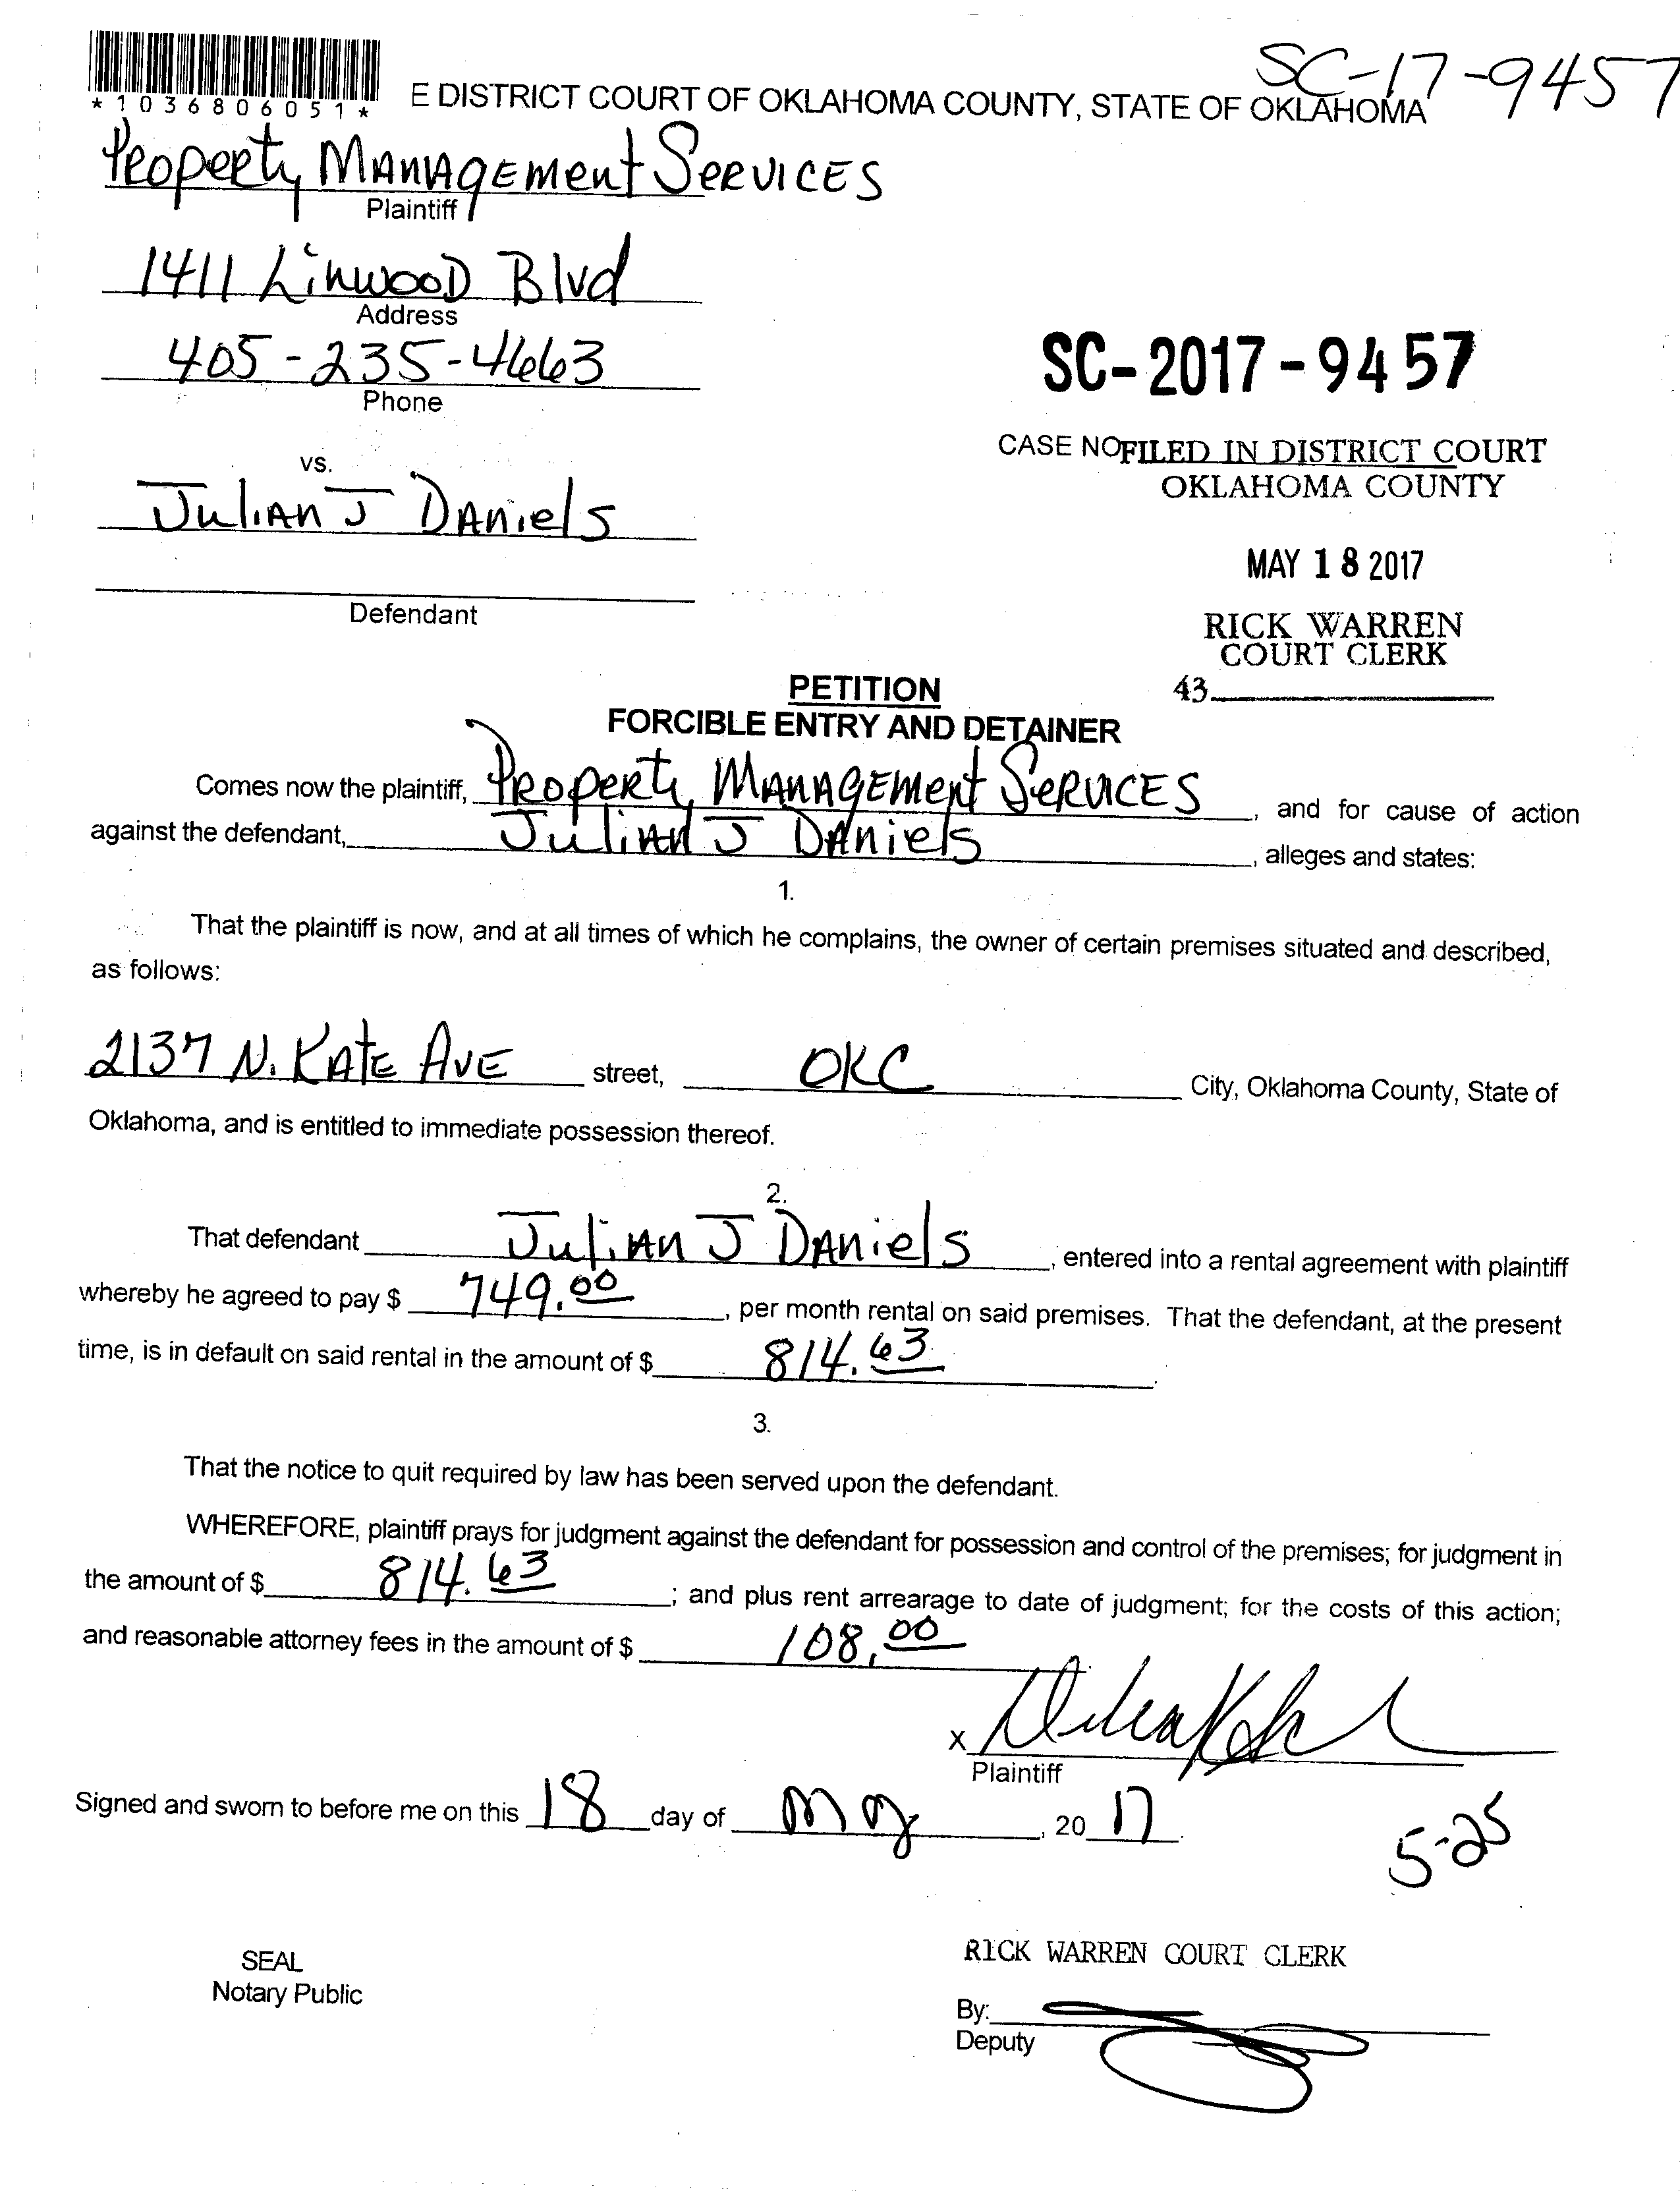 SC-17-9457
*1036806051*
E DISTRICT COURT OF OKLAHOMA COUNTY, STATE OF OKLAHOMA
Property Management Services
Plaintiff
1411 Linwood Blvd
Address
405-235-4663
Phone
SC-2017-9457
CASE NO
FILED IN DISTRICT COURT
OKLAHOMA COUNTY
vs.
Julian J Daniels
MAY 18 2017
Defendant
RICK WARREN
COURT CLERK
43
PETITION
FORCIBLE ENTRY AND DETAINER
Comes now the plaintiff, Property Management Services, and for cause of action
against the defendant, Julian J Daniels, alleges and states:
1.
That the plaintiff is now, and at all times of which he complains, the owner of certain premises situated and described,
as follows:
2137 N. Kate Ave street, OKC City, Oklahoma County, State of
Oklahoma, and is entitled to immediate possession thereof.
2.
That defendant Julian J Daniels, entered into a rental agreement with plaintiff
whereby he agreed to pay $ 749.00, per month rental on said premises. That the defendant, at the present
time, is in default on said rental in the amount of $ 814.63.
3.
That the notice to quit required by law has been served upon the defendant.
WHEREFORE, plaintiff prays for judgment against the defendant for possession and control of the premises; for judgment in
the amount of $ 814.63; and plus rent arrearage to date of judgment; for the costs of this action;
and reasonable attorney fees in the amount of $ 108.00
x
Plaintiff
Signed and sworn to before me on this 18 day of May, 2017
5-25
SEAL
Notary Public
RICK WARREN COURT CLERK
By:
Deputy